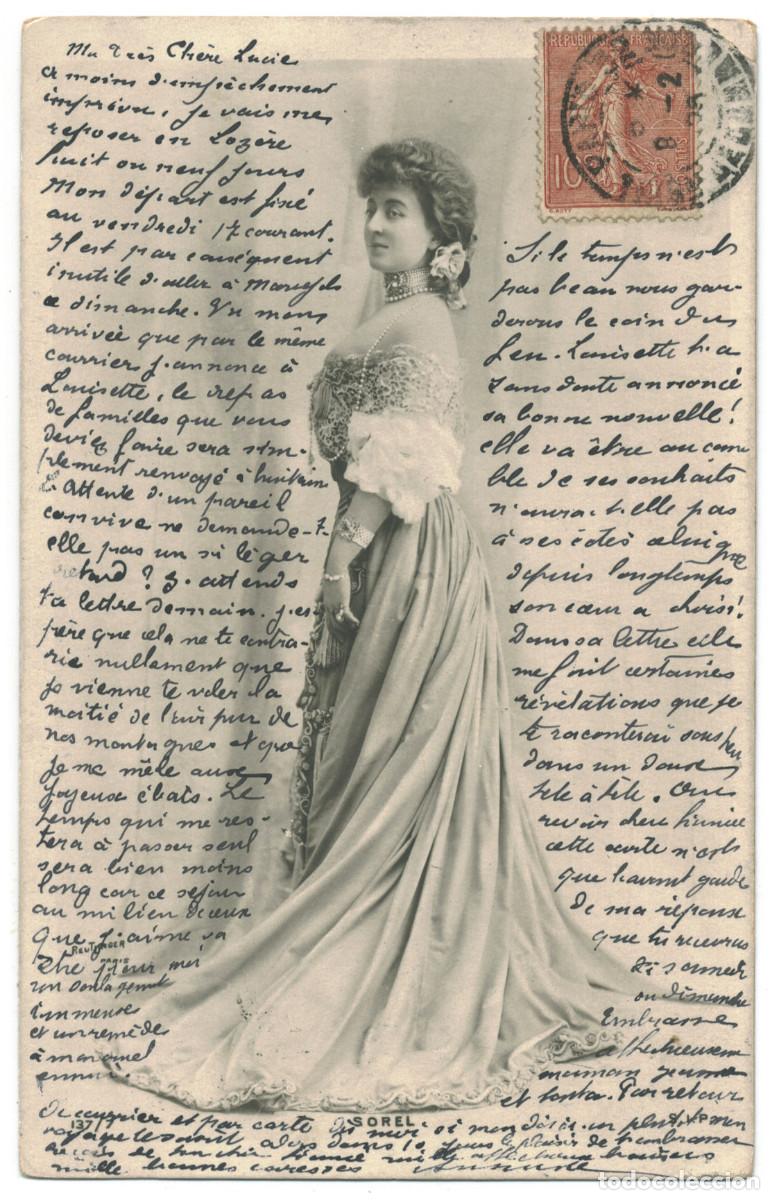 Ma Très Chère Lucie
A moins d'empêchement
imprévu, je vais me
reposer en Lozère
huit ou neuf jours
Mon départ est fixé
au vendredi 17 courant.
Il est par conséquent
inutile d'aller à
ce dimanche. Vu mon
arrivée que par le même
courrier j'annonce à
Louisette, le repas
de familles que vous
deviez faire sera sim-
plement renvoyé à huitain
L'Attente d'un pareil
convive ne demande-t-
elle pas un si léger
retard ? J'attends
ta lettre demain. J'es-
père que cela ne te contra-
rie nullement que
je vienne te voler la
moitié de l'air pur de
nos montagnes et que
je me mêle aux
joyeux ébats. Le
temps qui me res-
tera à passer seul
sera bien moins
long car ce séjour
au milieu de ceux
que j'aime va
être pour moi
un soulagement
immense
et un remède
à mon
ennui.
REPUBLIQUE FRANCAISE
10
POSTES
Si le temps n'est
pas beau nous gar-
derons le coin du
feu. Louisette t'a
sans doute annoncé
sa bonne nouvelle!
elle va être au com-
ble de ses souhaits
n'aura-t-elle pas
à ses côtés celui que
depuis longtemps
son cœur a choisi!
Dans sa lettre elle
me fait certaines
révélations que je
te raconterai sous peu
dans un doux
tête à tête. Au
revoir chère
cette carte n'est
que l'avant garde
de ma réponse
que tu recevras
samedi
ou dimanche
Embrasse
affectueusement
maman Jeanne
et tonton. Par retour
de courrier et par carte dis moi si
le plaisir de t'embrasser
reçois de ton cher fiancé mille affectueux baisers
mille bonnes caresses
REUTLINGER
PARIS
137/
SOREL
todocoleccion